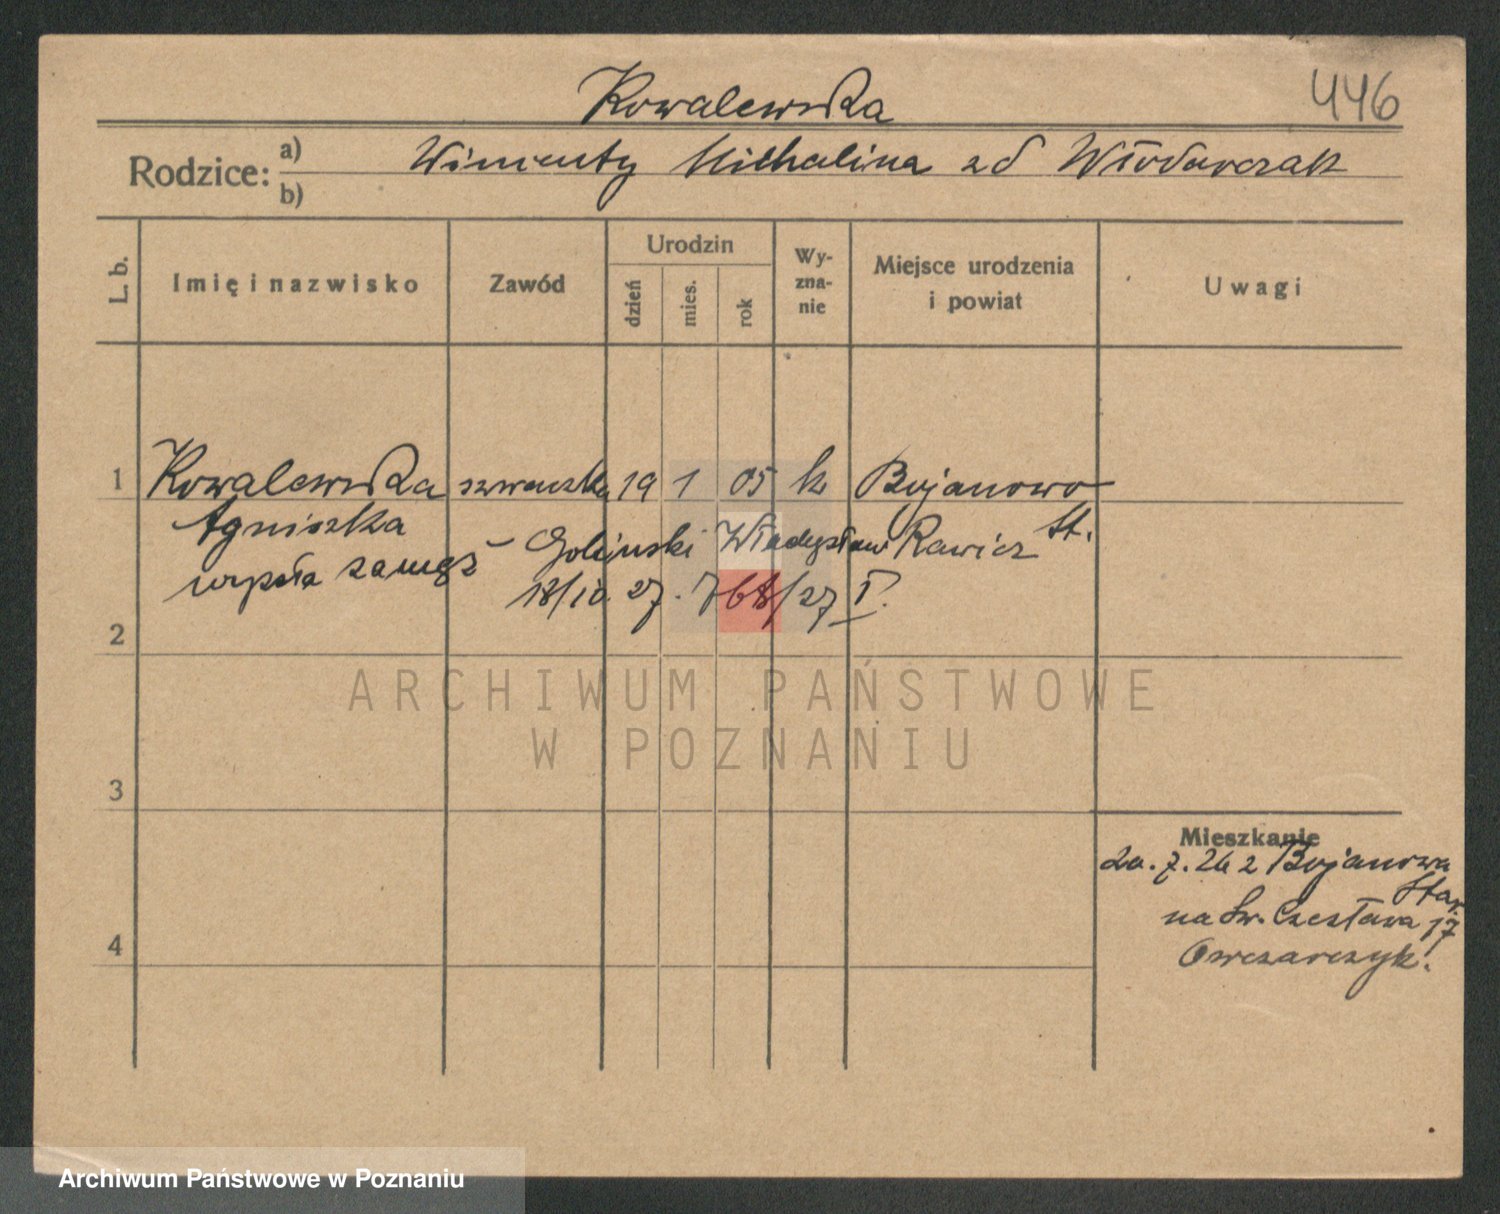 Kowalewska
446
Rodzice: a) b) Wincenty Michalina zd Włodarczak
L. b.
Imię i nazwisko
Zawód
Urodzin
dzień
mies.
rok
Wy-
zna-
nie
Miejsce urodzenia
i powiat
Uwagi
1 Kowalewska szwaczka 19 1 05 k Bojanowo
Agniszka St.
wyszła zamęż Goliński Władysław Rawicz
18/10. 27. 768/27 I.
2
3
4
ARCHIWUM PAŃSTWOWE
W POZNANIU
Mieszkanie
20.7.26 z Bojanowa
Star.
na Św. Czesława 17
Owczarczyk.
Archiwum Państwowe w Poznaniu